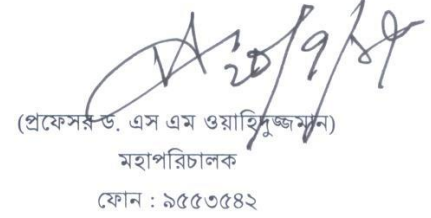 ২০/৭/১৭
(প্রফেসর ড. এস এম ওয়াহিদুজ্জামান)
মহাপরিচালক
ফোন : ৯৫৫৩৫৪২